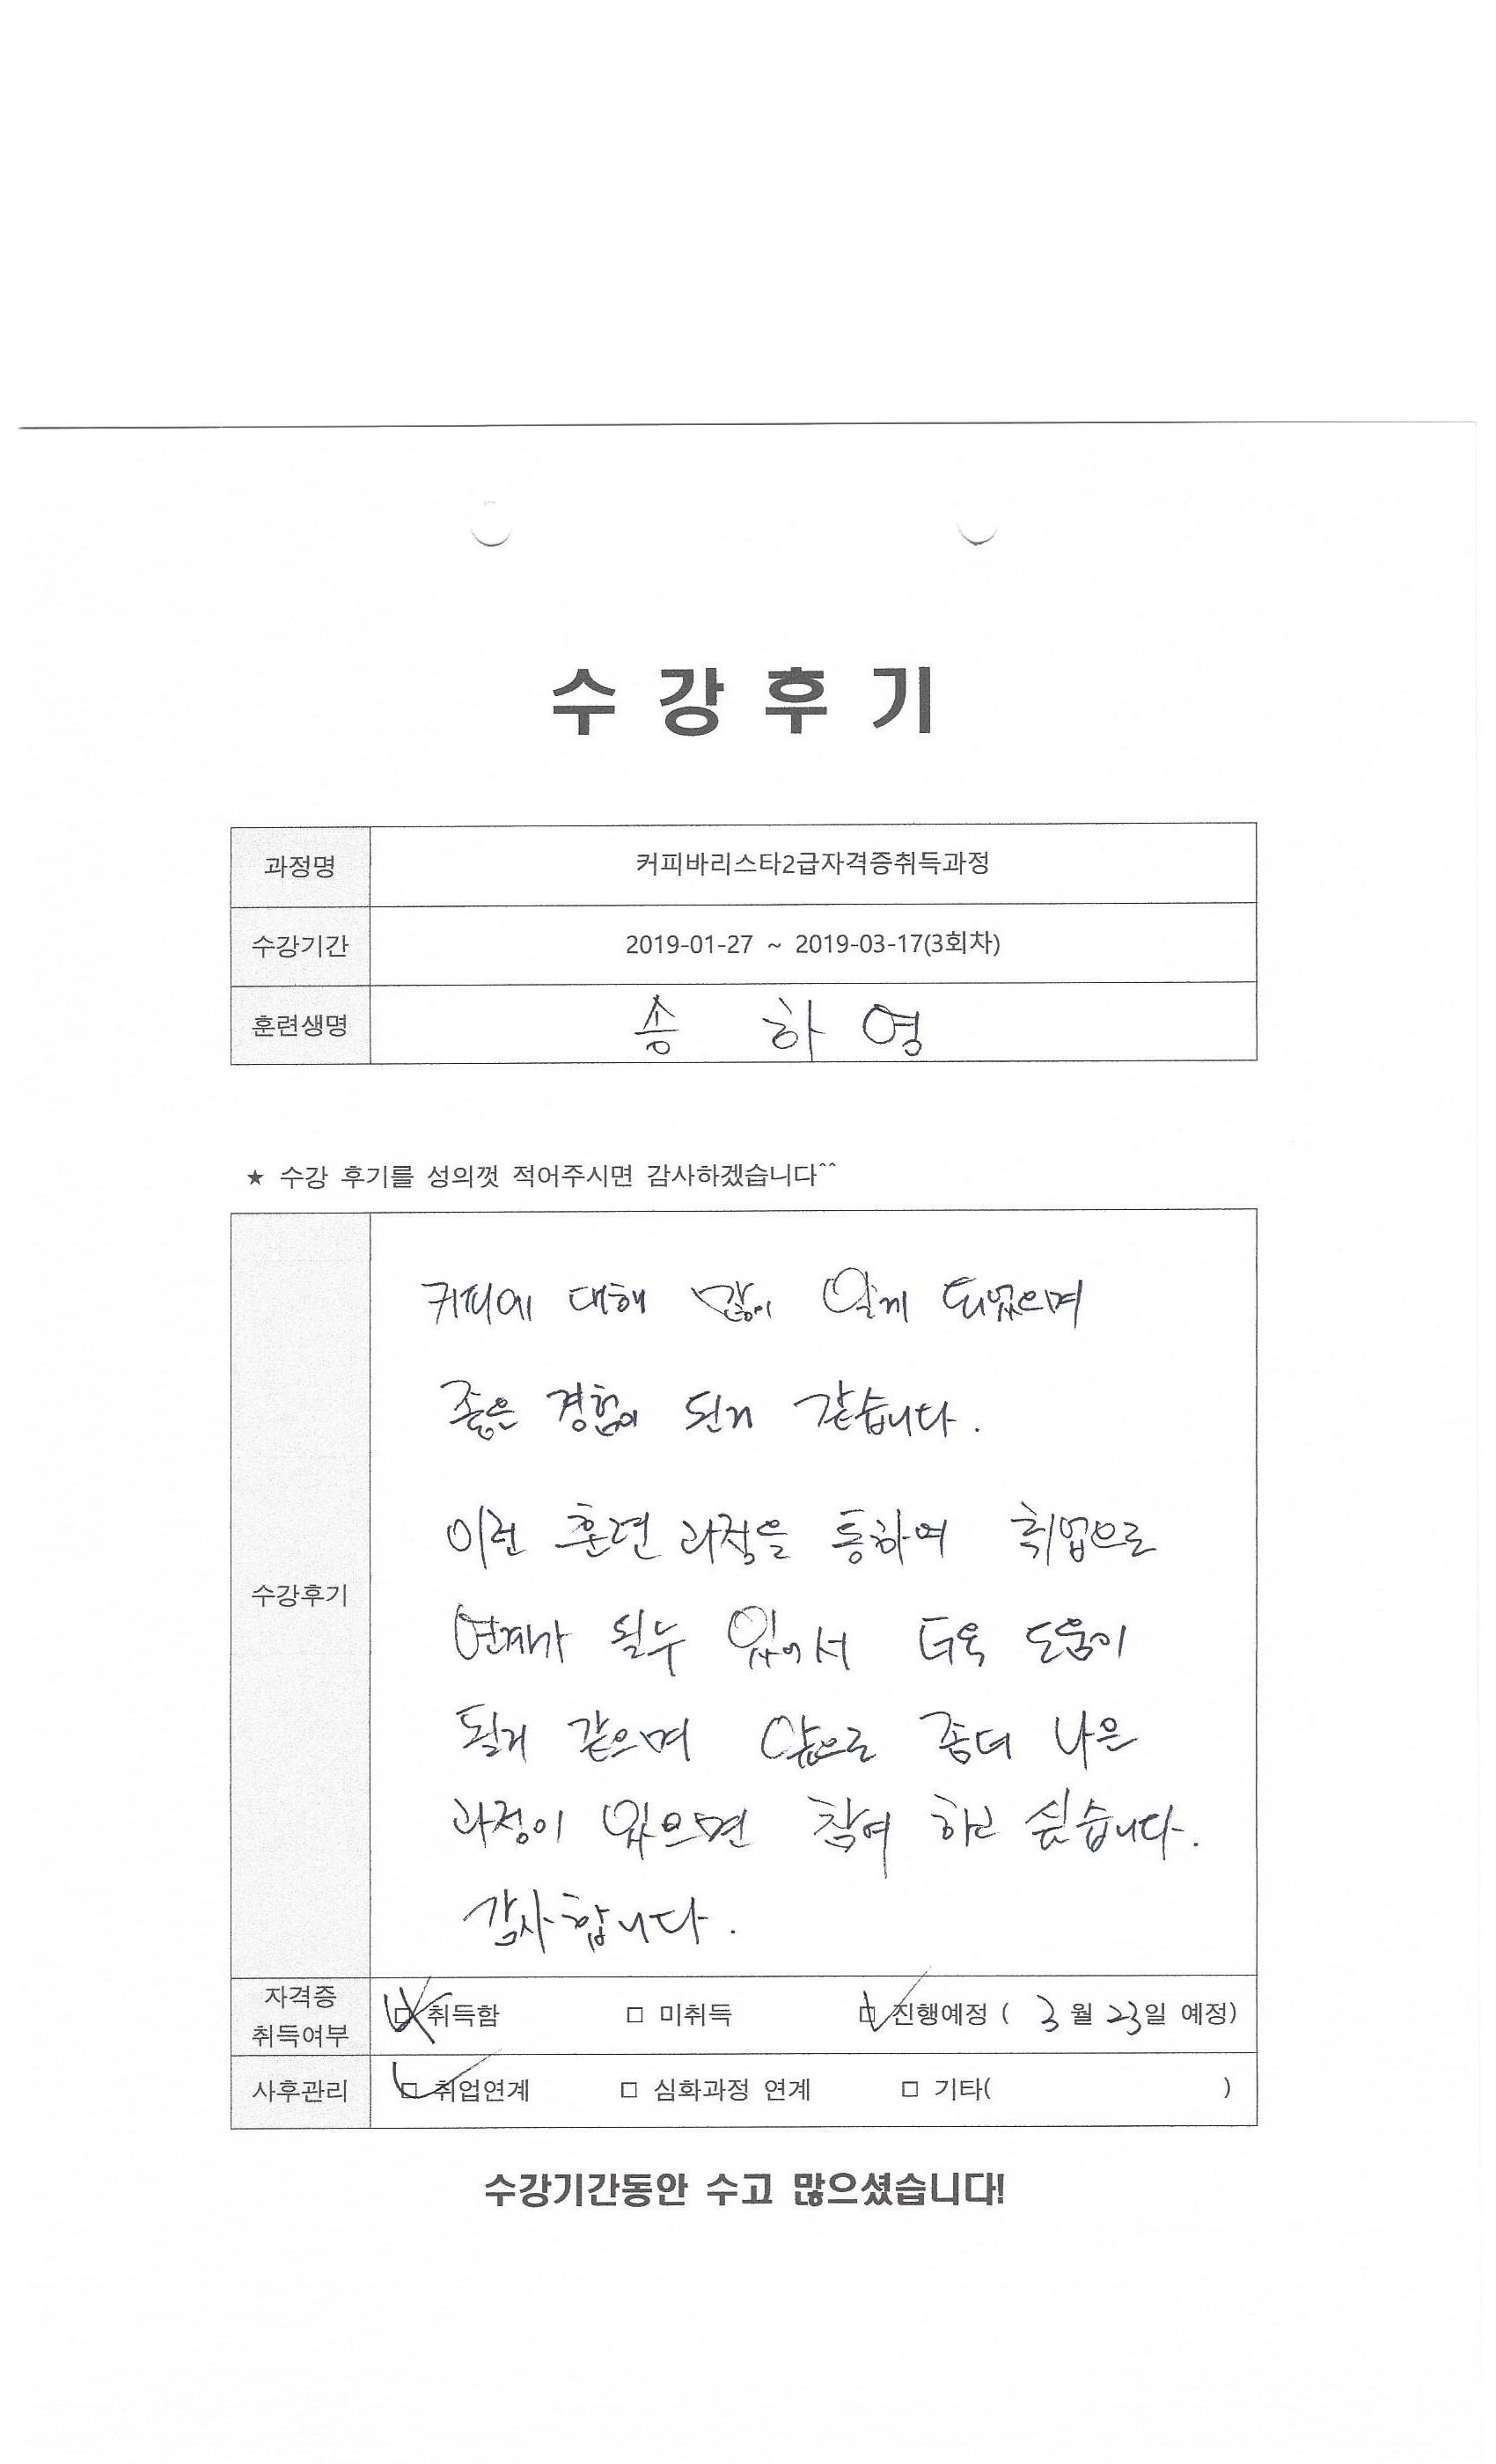 수 강 후 기
과정명 커피바리스타2급자격증취득과정
수강기간 2019-01-27 ~ 2019-03-17(3회차)
훈련생명 송 하 영
★ 수강 후기를 성의껏 적어주시면 감사하겠습니다^^
수강후기
커피에 대해 많이 알게 되었으며
좋은 경험이 된거 같습니다.
이런 훈련 과정을 통하여 취업으로
연계가 될수 있어서 더욱 도움이
될거 같으며 앞으로 좀더 나은
과정이 있으면 참여 하고 싶습니다.
감사합니다.
자격증
취득여부
□ 취득함 □ 미취득 □ 진행예정 ( 3 월 23일 예정)
사후관리 □ 취업연계 □ 심화과정 연계 □ 기타( )
수강기간동안 수고 많으셨습니다!